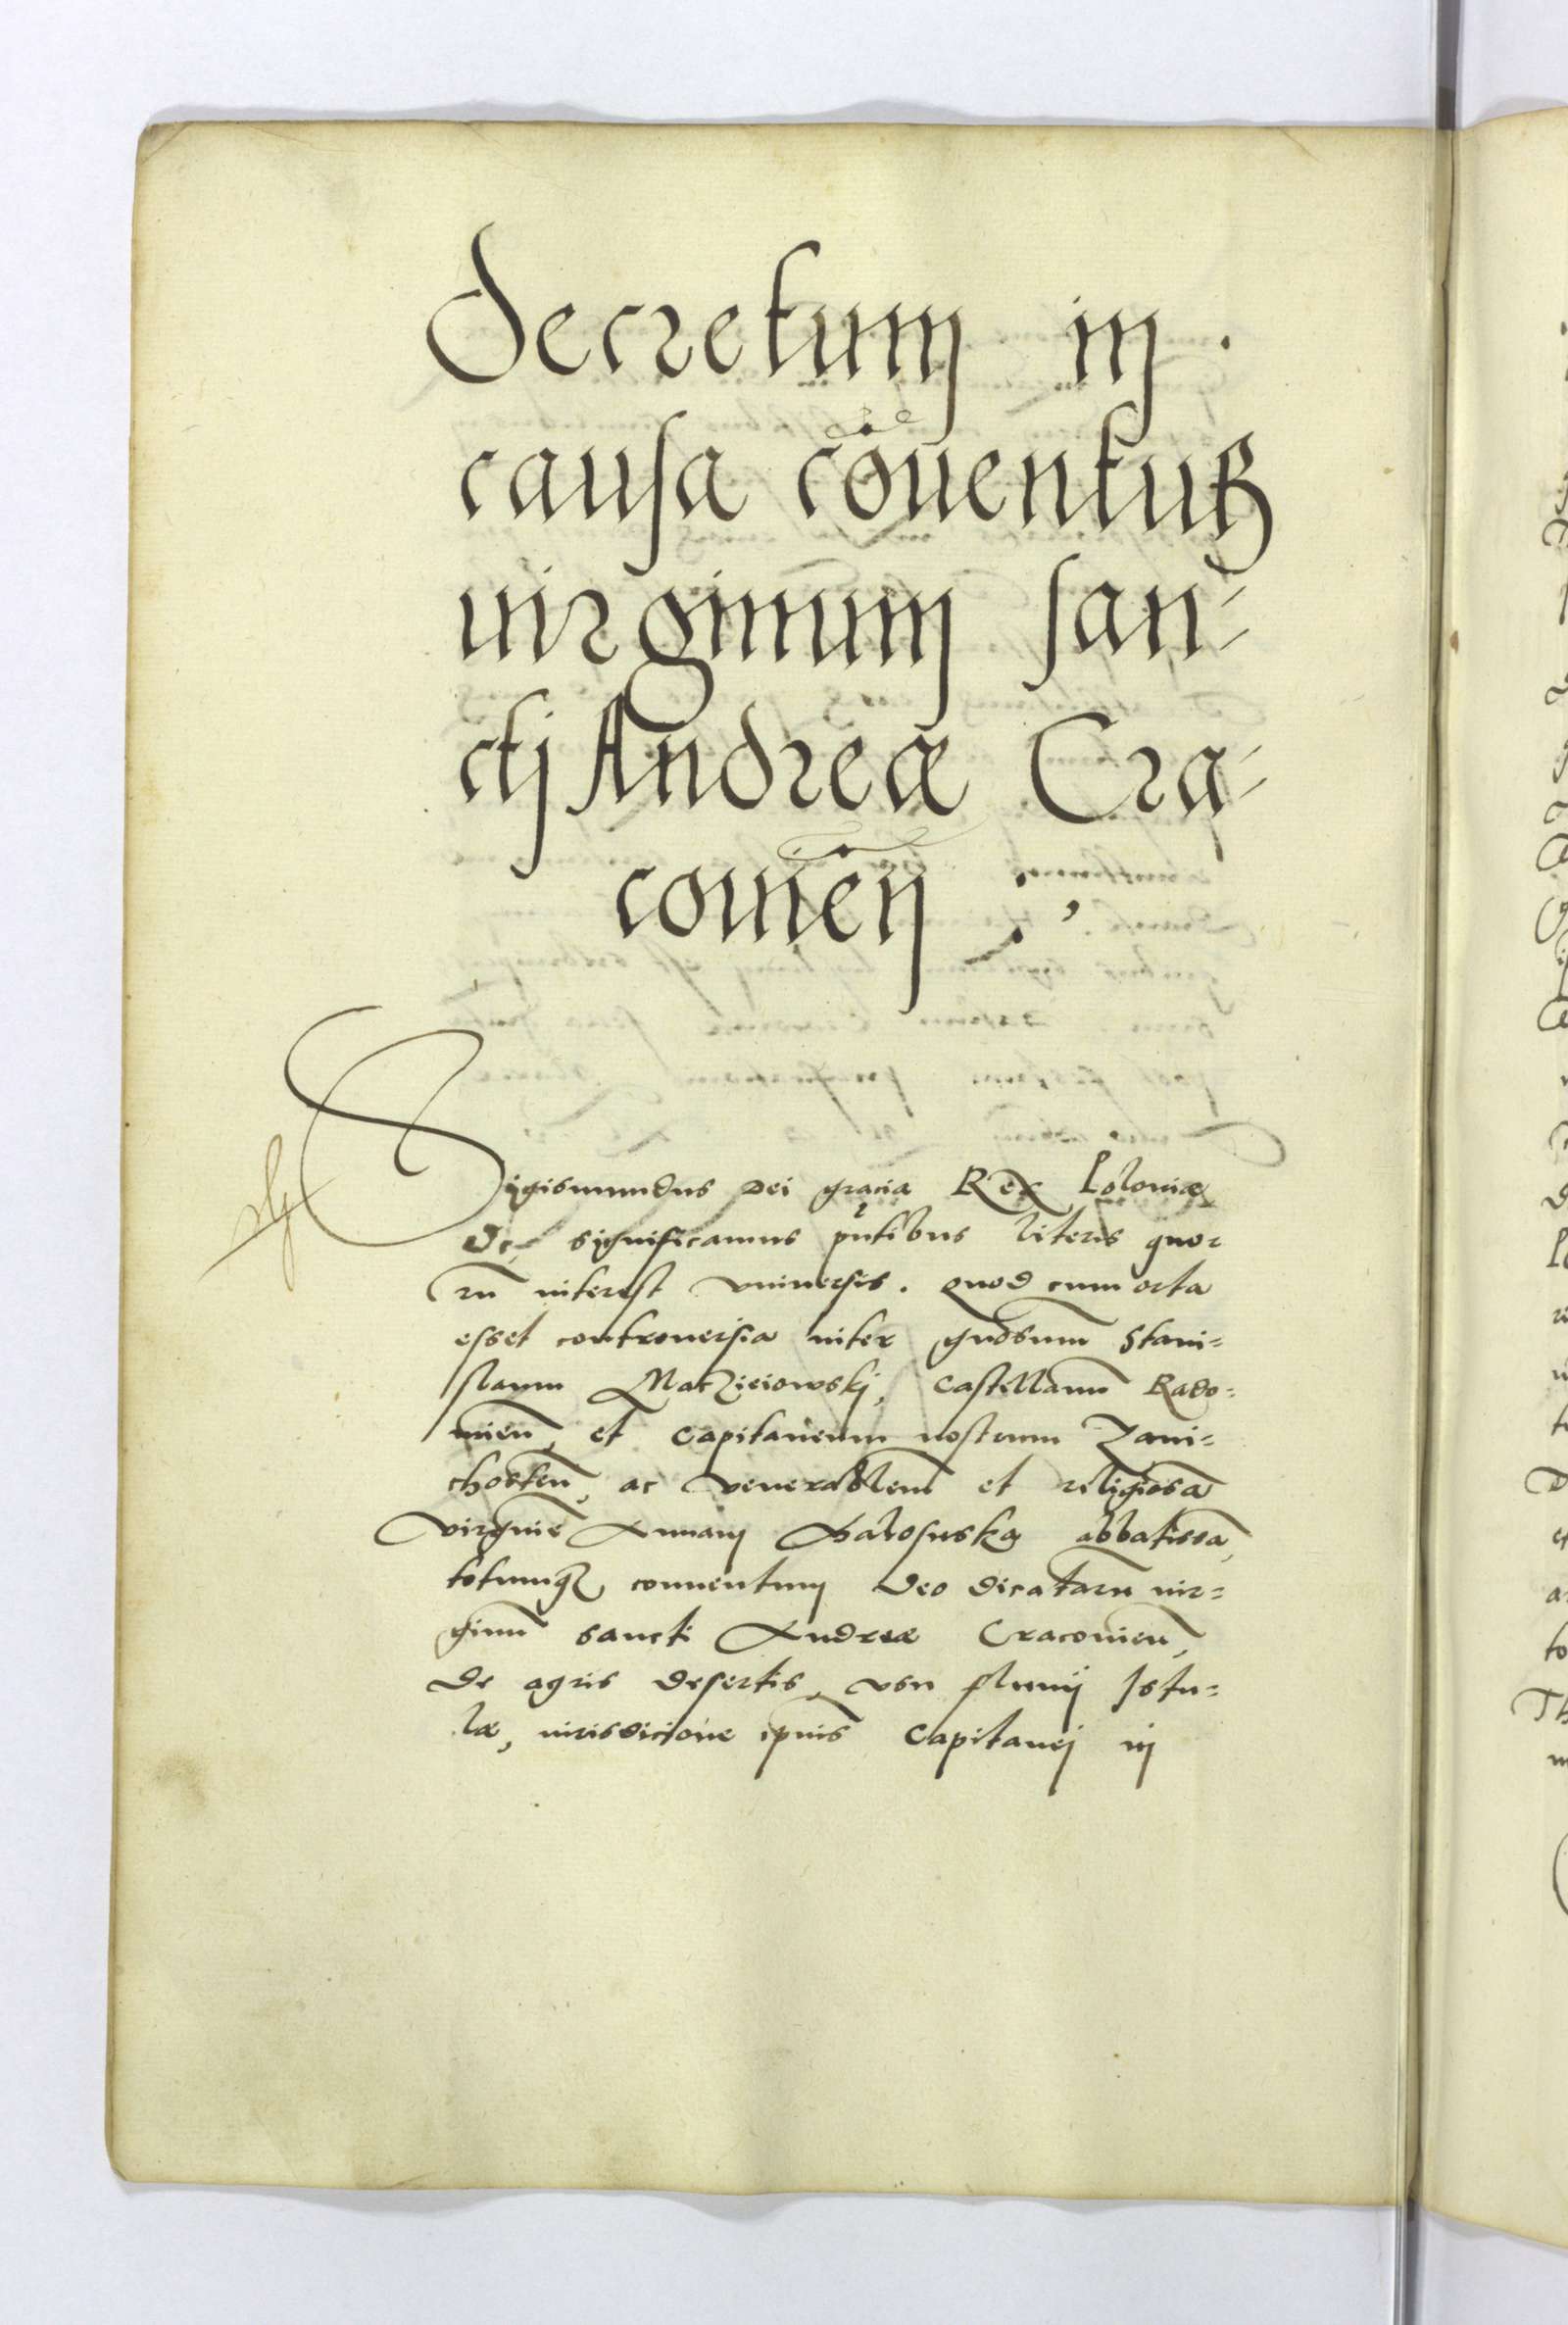 Decretum in
causa cōuentus
uirginum san-
cti Andreæ Cra-
couień
Sigismundus Dei gracia Rex Poloniæ
Significamus pntibus literis quo-
rū interest vniuersis. quod cum orta
esset controuersia inter gnosum Stani=
slaum Macziеiowskj, castellanū Rado=
mień, et Capitaneum nostrum Zaui=
chosteń, ac venerabilem et religiosā
virginē Annam abbatissā,
totumqȝ conuentum Deo dicatarū uir=
ginū sancti Andreæ Cracouień,
de agris desertis, vsu fluuij Istu=
læ, iurisdicione ipsius Capitanej in